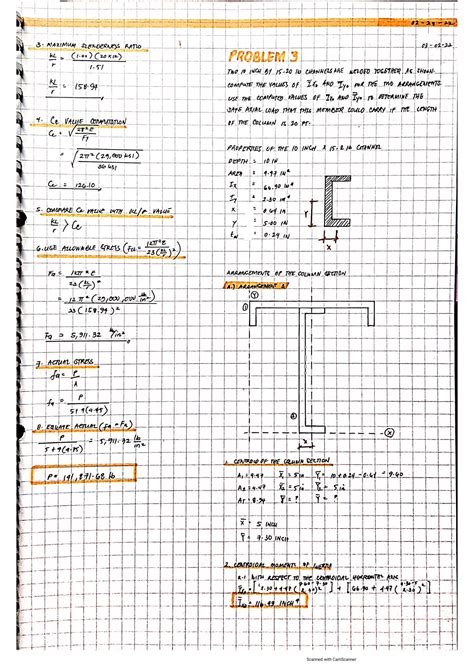 02-24-22
3. MAXIMUM SLENDERNESS RATIO
KL/r = (1.00)(20x12)/1.51
KL/r = 158.94
4. Cc VALUE COMPUTATION
Cc = √(2π²E/Fy)
= √(2π²(29,000 ksi)/36 ksi)
Cc = 126.10
5. COMPARE Cc VALUE WITH KL/r VALUE
KL/r > Cc
6. USE ALLOWABLE STRESS (Fa = 12π²E/23(KL/r)²)
Fa = 12π²E/23(KL/r)²
= 12π²(29,000,000 lb/in²)/23(158.94)²
Fa = 5,911.32 lb/in²
7. ACTUAL STRESS
fa = P/A
fa = P/
8. EQUATE ACTUAL (fa = Fa)
= 5,911.32 lb/in²
P = 141,871.68 lb
03-02-22
PROBLEM 3
TWO 10 INCH BY 15.30 CHANNELS ARE WELDED TOGETHER AS SHOWN.
COMPUTE THE VALUES OF Ixo AND Iyo FOR THE TWO ARRANGEMENTS
USE THE COMPUTED VALUES OF Ixo AND Iyo TO DETERMINE THE
SAFE AXIAL LOAD THAT THIS MEMBER COULD CARRY IF THE LENGTH
OF THE COLUMN IS 20 FT.
PROPERTIES OF THE 10 INCH X CHANNEL
DEPTH = 10 IN
AREA = 4.47 IN²
Ix = 66.90 IN⁴
Iy = 2.30 IN⁴
X = 0.64 IN
Y = 5.00 IN
tw = 0.24 IN
Y
X
ARRANGEMENTS OF THE COLUMN SECTION
a.) ARRANGEMENT
Y
1
2
X
X
1. CENTROID OF THE COLUMN SECTION
A₁ = 4.47 X̄₁ = 5 in Ȳ₁ = 10 + 0.24 - 0.64 = 9.60
A₂ = 4.47 X̄₂ = 5 in Ȳ₂ = 5 in
AT = 8.94 X̄ = ? Ȳ = ?
X̄ = 5 INCH
Ȳ = 7.30 INCH
2. CENTROIDAL MOMENTS OF INERTIA
WITH RESPECT TO THE CENTROIDAL HORIZONTAL AXIS
Īxo = 116.49 INCH⁴
Scanned with CamScanner